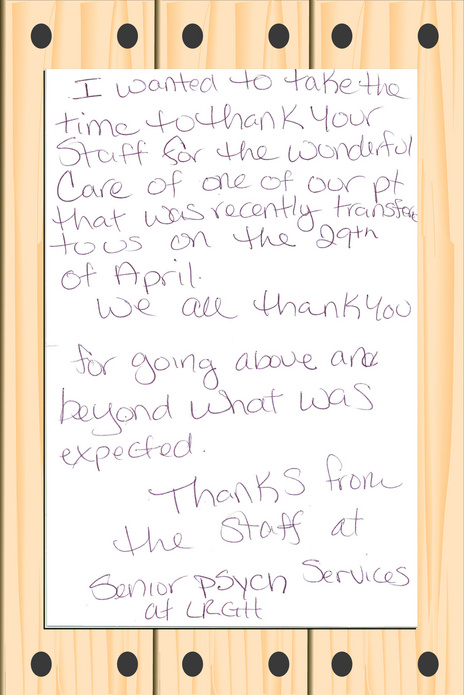 I wanted to take the
time to thank your
Staff for the wonderful
Care of one of our pt
that was recently transfer
to us on the 29th
of April.
We all thank you
for going above and
beyond what was
expected.
Thanks from
the Staff at
Senior psych Services
at LRGH